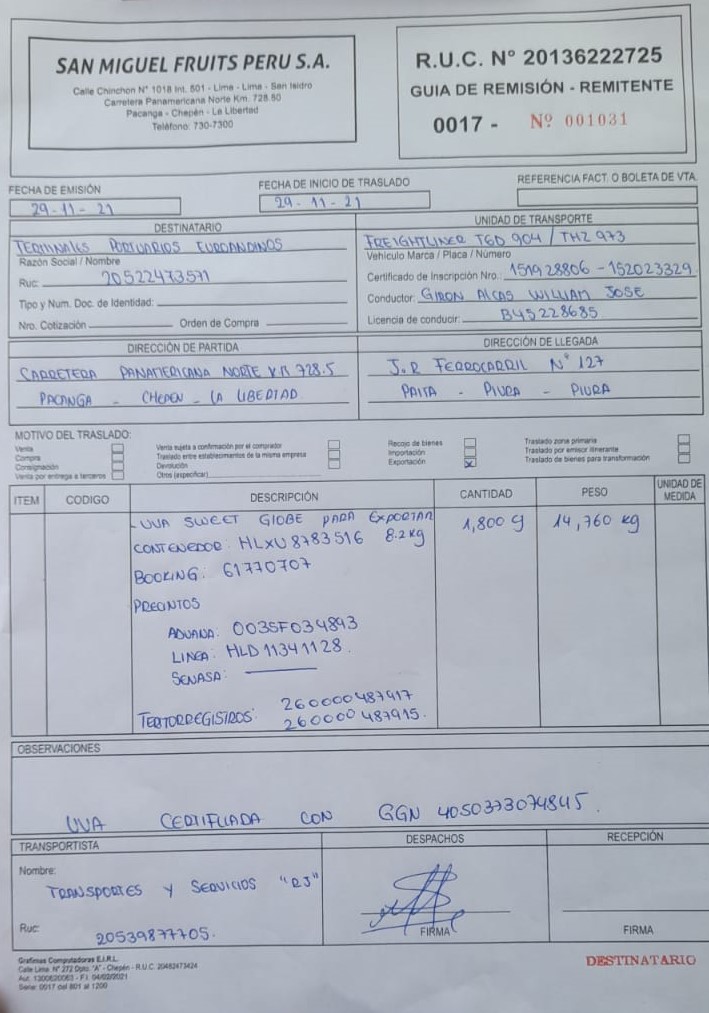 SAN MIGUEL FRUITS PERU S.A.
Calle Chinchon N° 1018 Int. 601 - Lima - Lima - San Isidro
Carretera Panamericana Norte Km. 728.50
Pacanga - Chepén - La Libertad
Teléfono: 730-7300
R.U.C. N° 20136222725
GUIA DE REMISIÓN - REMITENTE
0017 - Nº 001031
FECHA DE EMISIÓN
29-11-21
FECHA DE INICIO DE TRASLADO
29-11-21
REFERENCIA FACT. O BOLETA DE VTA.
DESTINATARIO
TERMINALES PORTUARIOS EUROANDINOS
Razón Social / Nombre
Ruc: 20522473571
Tipo y Num. Doc. de Identidad:
Nro. Cotización Orden de Compra
UNIDAD DE TRANSPORTE
FREIGHTLINER T6D 904 / THZ 973
Vehículo Marca / Placa / Número
Certificado de Inscripción Nro.: 151928806 - 152023329
Conductor: GIRON ALCAS WILLIAM JOSE
Licencia de conducir: B45228685
DIRECCIÓN DE PARTIDA
CARRETERA PANAMERICANA NORTE KM 728.5
PACANGA - CHEPEN - LA LIBERTAD
DIRECCIÓN DE LLEGADA
J.R FERROCARRIL N° 127
PAITA - PIURA - PIURA
MOTIVO DEL TRASLADO:
Venta
Compra
Consignación
Venta por entrega a terceros
Venta sujeta a confirmación por el comprador
Traslado entre establecimientos de la misma empresa
Devolución
Otros (especificar)
Recojo de bienes
Importación
Exportación X
Traslado zona primaria
Traslado por emisor itinerante
Traslado de bienes para transformación
ITEM CODIGO DESCRIPCIÓN CANTIDAD PESO UNIDAD DE MEDIDA
- UVA SWEET GLOBE PARA EXPORTAR 1,800 14,760 kg
CONTENEDOR: HLXU 8783516 8.2 kg
BOOKING: 61770707
PRECINTOS
ADUANA: 003SF034893
LINEA: HLD 11341128.
SENASA:
TERMORREGISTROS: 260000487917
260000487915.
OBSERVACIONES
UVA CERTIFICADA CON GGN 4050373074845.
TRANSPORTISTA
Nombre:
TRANSPORTES Y SERVICIOS "RJ"
Ruc: 20539877705.
DESPACHOS
FIRMA
RECEPCIÓN
FIRMA
Grafimas Computadoras E.I.R.L.
Calle Lima N° 272 Dpto. "A" - Chepén - R.U.C. 20482473424
Serie: 0017 del 801 al 1200
DESTINATARIO